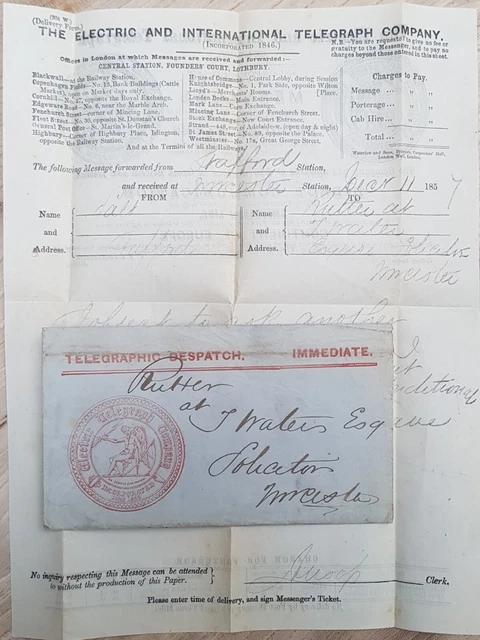 (Delivery Form.)
THE ELECTRIC AND INTERNATIONAL TELEGRAPH COMPANY.
(INCORPORATED 1846.)
N.B.—You are requested to give no fee or
gratuity to the Messenger, and to pay no
charges beyond those entered in this sheet.
Offices in London at which Messages are received and forwarded:—
CENTRAL STATION, FOUNDERS' COURT, LOTHBURY.
Blackwall—at the Railway Station.
Copenhagen Fields—No. 13, Bank Buildings (Cattle
Market), on Market days only.
Cornhill—No. 27, opposite the Royal Exchange.
Edgeware Road—No. 6, near the Marble Arch.
Fenchurch Street—corner of Mincing Lane.
Fleet Street—No. 30, opposite St. Dunstan's Church
General Post Office—St. Martin's-le-Grand.
Highbury—corner of Highbury Place, Islington,
opposite the Railway Station.
House of Commons—Central Lobby, during Session
Knightsbridge—No. 1, Park Side, opposite Wilton Place.
Lloyd's—Merchants' Rooms.
London Docks—Main Entrance.
Mark Lane—Corn Exchange.
Mincing Lane—Corner of Fenchurch Street.
Stock Exchange—New Court Entrance.
Strand—448, cor. of Adelaide-st. (open day & night)
St. James Street—No. 89, opposite the Palace.
Westminster—No. 17a, Great George Street.
And at the Termini of all the Railways.
Charges to Pay.
Message
Porterage
Cab Hire
Total
The following Message forwarded from Stafford Station,
and received at Worcester Station, Decr 11 1857
FROM
TO
Name
and
Address.
Name
and
Address.
Rutter at
Worcester
another
TELEGRAPHIC DESPATCH. IMMEDIATE.
Rutter
at
T Waters Esquire
Solicitor
Worcester
Electric Telegraph Company
INCORPORATED
No inquiry respecting this Message can be attended
to without the production of this Paper.
Clerk.
Please enter time of delivery, and sign Messenger's Ticket.